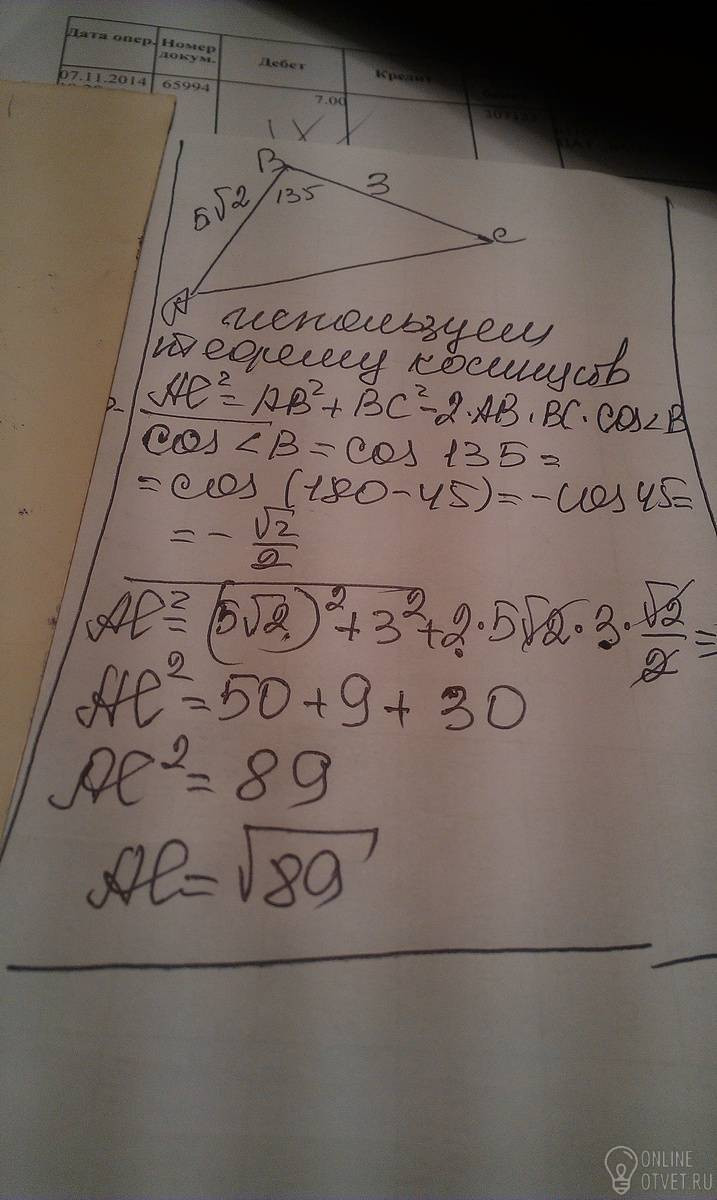 Дата опер. Номер докум. Дебет Кредит
07.11.2014 65994 7.00
B
5√2 135 3
A C
используем
теорему косинусов
AC² = AB² + BC² - 2·AB·BC·cos<B
cos <B = cos 135 =
= cos (180-45) = -cos 45 =
= - √2/2
AC² = (5√2)² + 3² + 2·5√2·3·√2/2 =
AC² = 50 + 9 + 30
AC² = 89
AC = √89
ONLINE
OTVET.RU